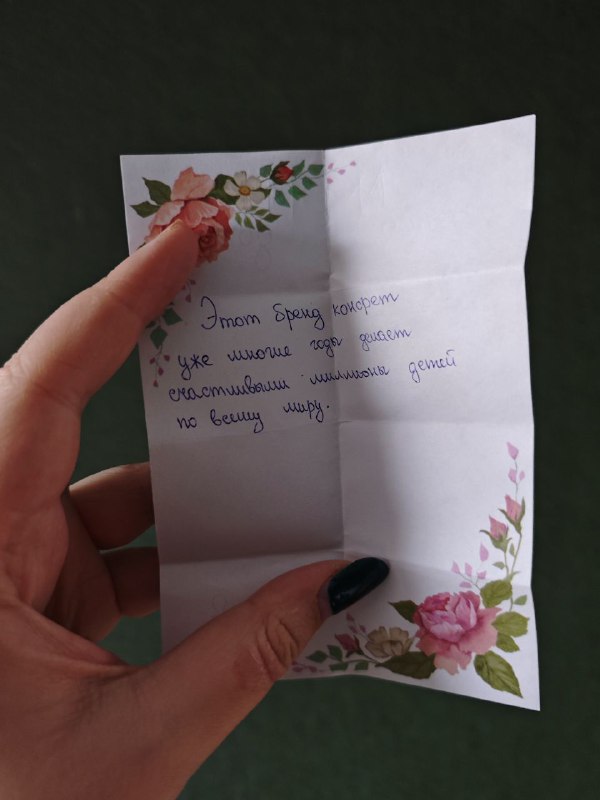 Этот бренд конфет
уже многие годы делает
счастливыми миллионы детей
по всему миру.